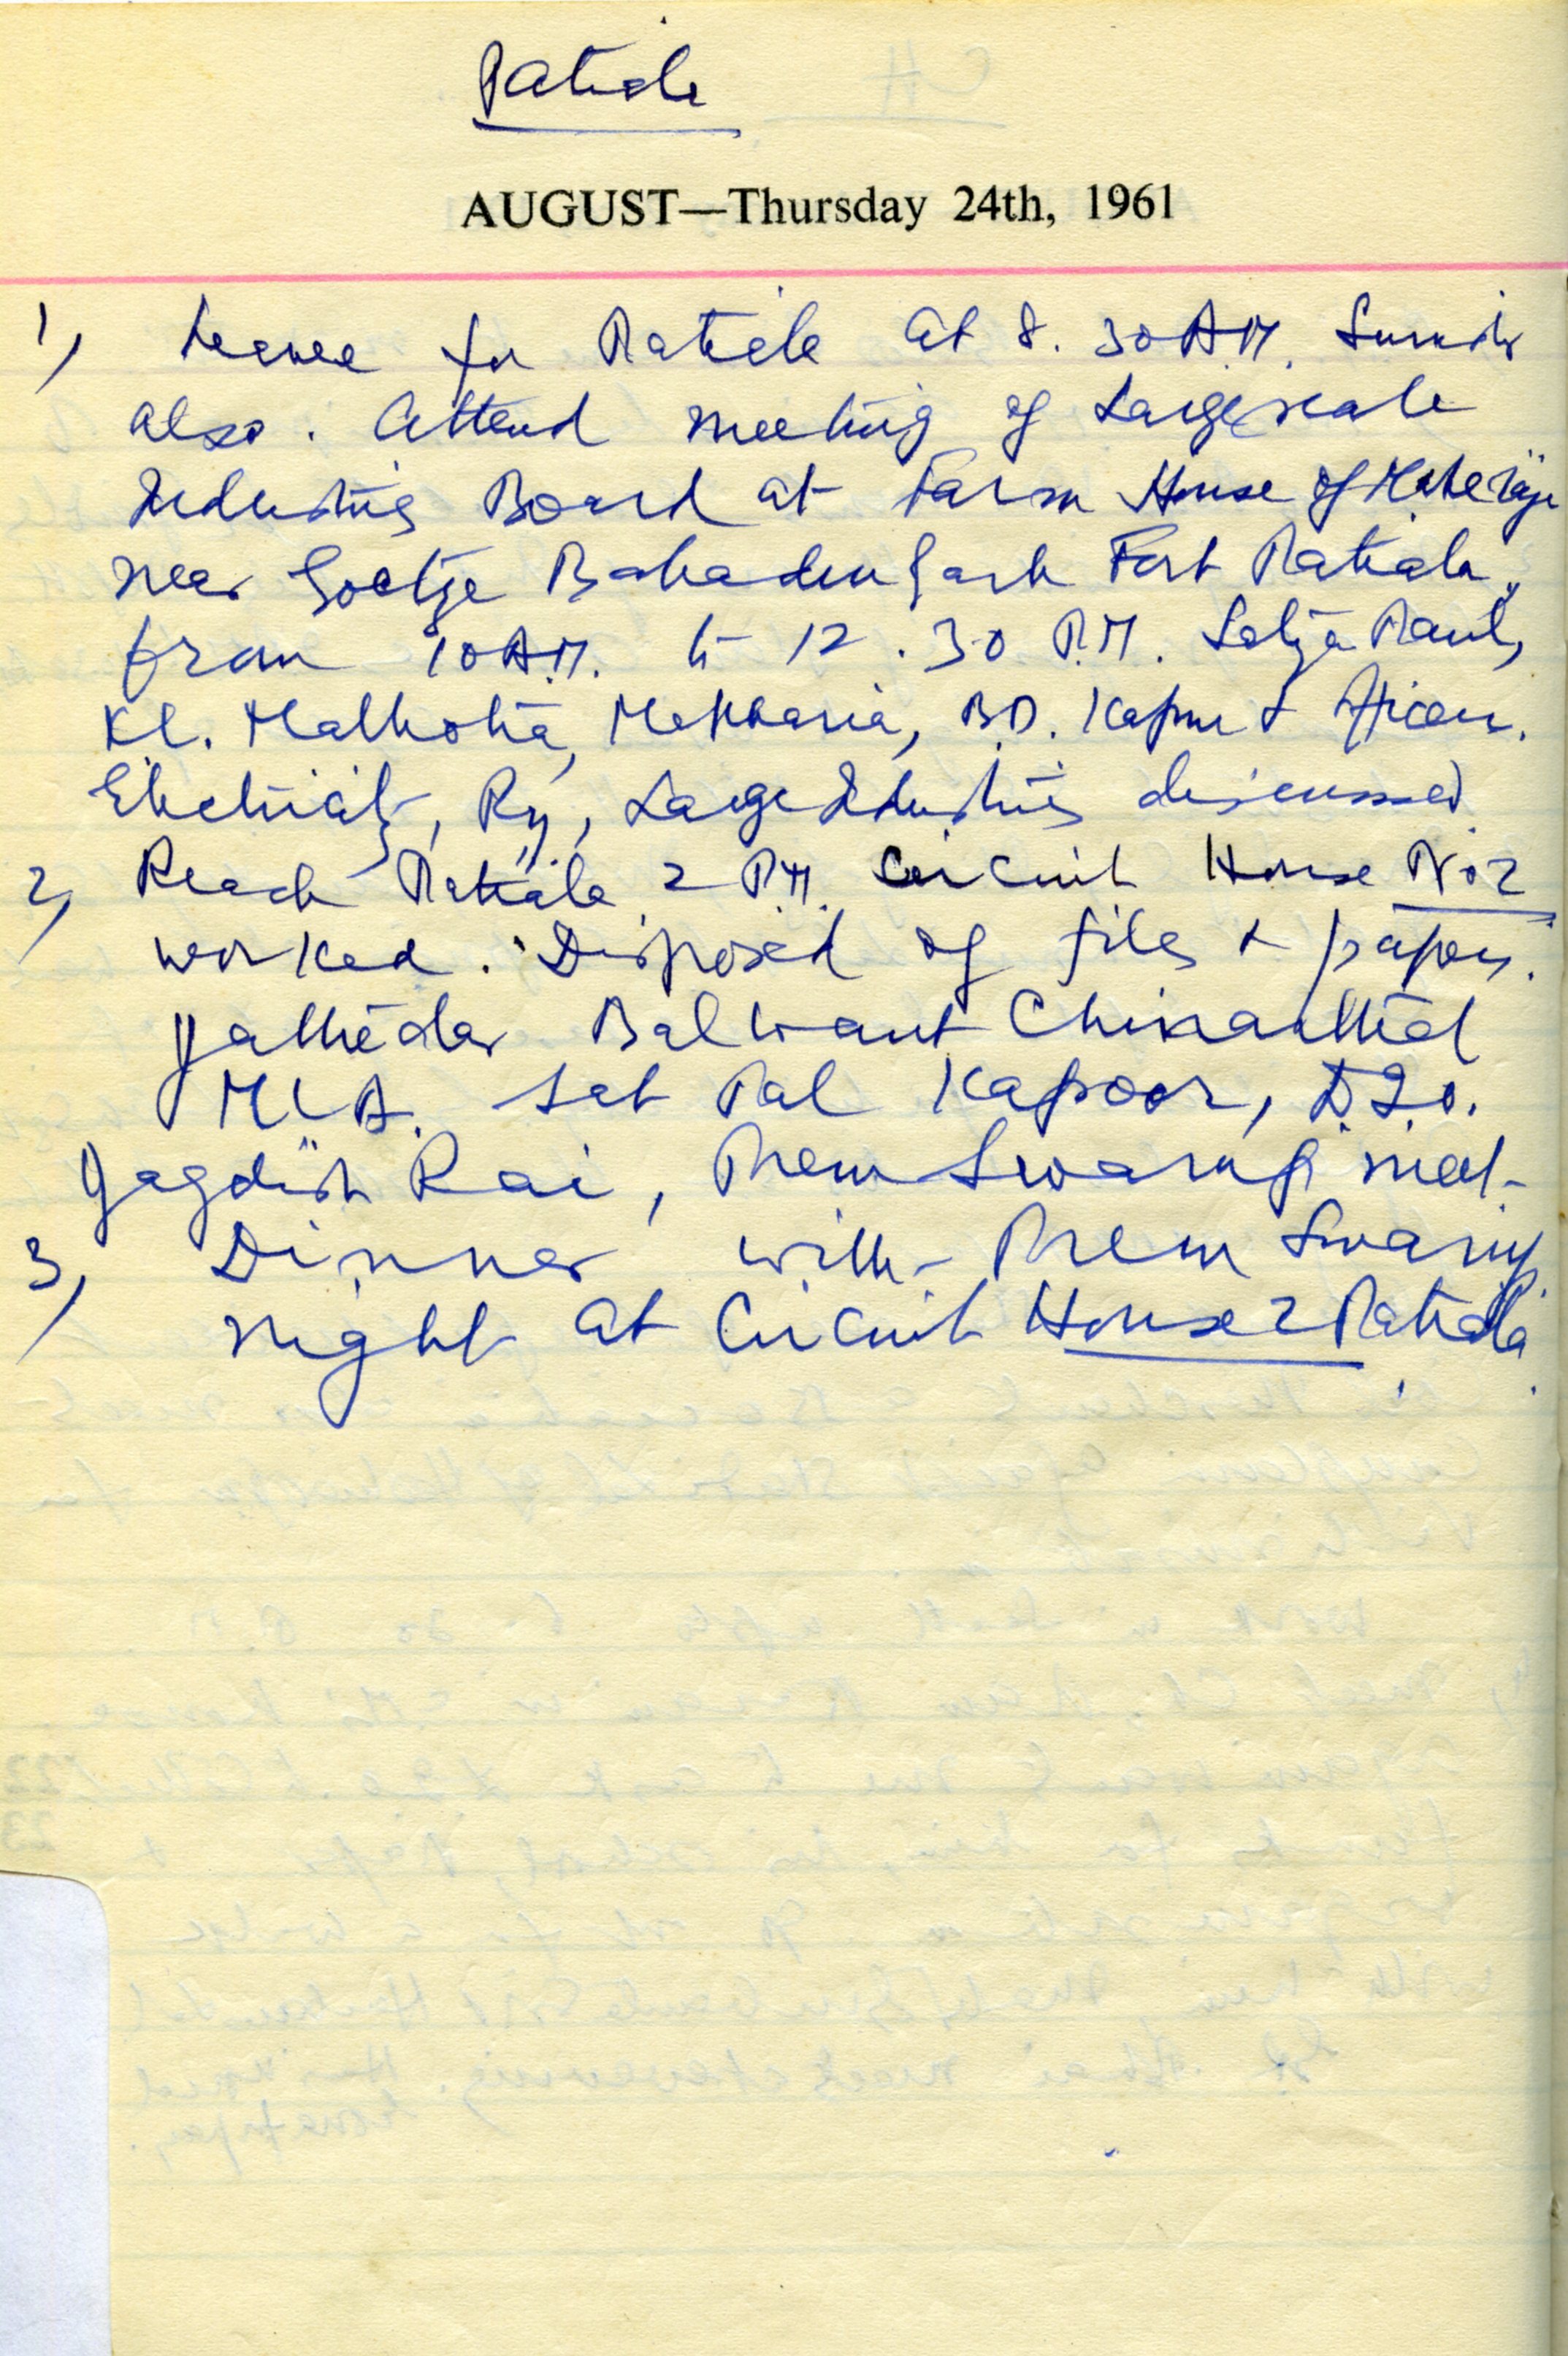 Patiala
AUGUST—Thursday 24th, 1961
1) Leave for Patiala at 8.30 AM.
also. Attend meeting of Large scale
Industries Board at Farm House of Maharaja
near Bahadur Garh Fort Patiala
from 10 AM. to 12.30 P.M. Satya Paul,
K.L. Malhotra, B.D. Kapur & Officers.
Electricity, Ry, Large Industries discussed.
2) Reach Patiala 2 PM. Circuit House No 2
worked. Disposed of files & papers.
Jathedar Balwant Chinarthal
MLA. Sat Pal Kapoor, D.I.O.
Jagdish Rai, Prem Swarup meet.
3) Dinner with Prem Swarup.
night at Circuit House 2 Patiala.